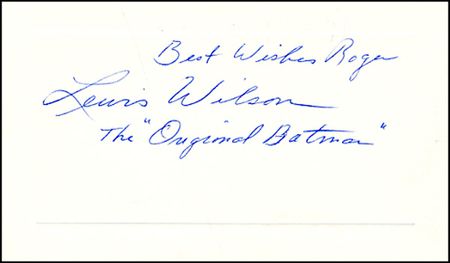 Best Wishes Roger
Lewis Wilson
The "Original Batman"